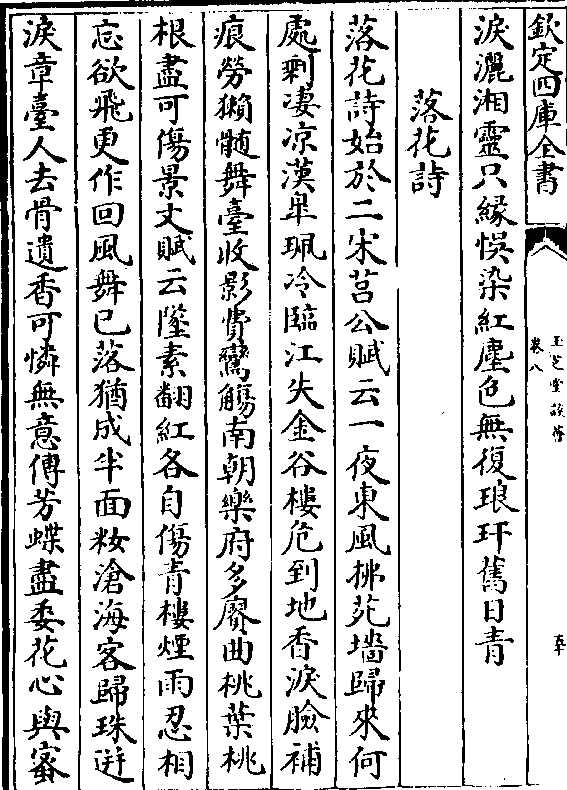 欽定四庫全書
玉芝堂談薈
卷八
淚灑湘靈只緣悞染紅塵色無復琅玕舊日青
落花詩
落花詩始於二宋莒公賦云一夜東風拂苑墻歸來何
處剰凄凉漢臯珮冷臨江失金谷樓危到地香淚臉補
痕勞獺髄舞臺收影費鸞觴南朝樂府多賡曲桃葉桃
根盡可傷景文賦云墜素翻紅各自傷青樓煙雨忍相
忘欲飛更作回風舞已落猶成半面粧滄海客歸珠迸
淚章臺人去骨遺香可憐無意傳芳蝶盡委花心與蜜